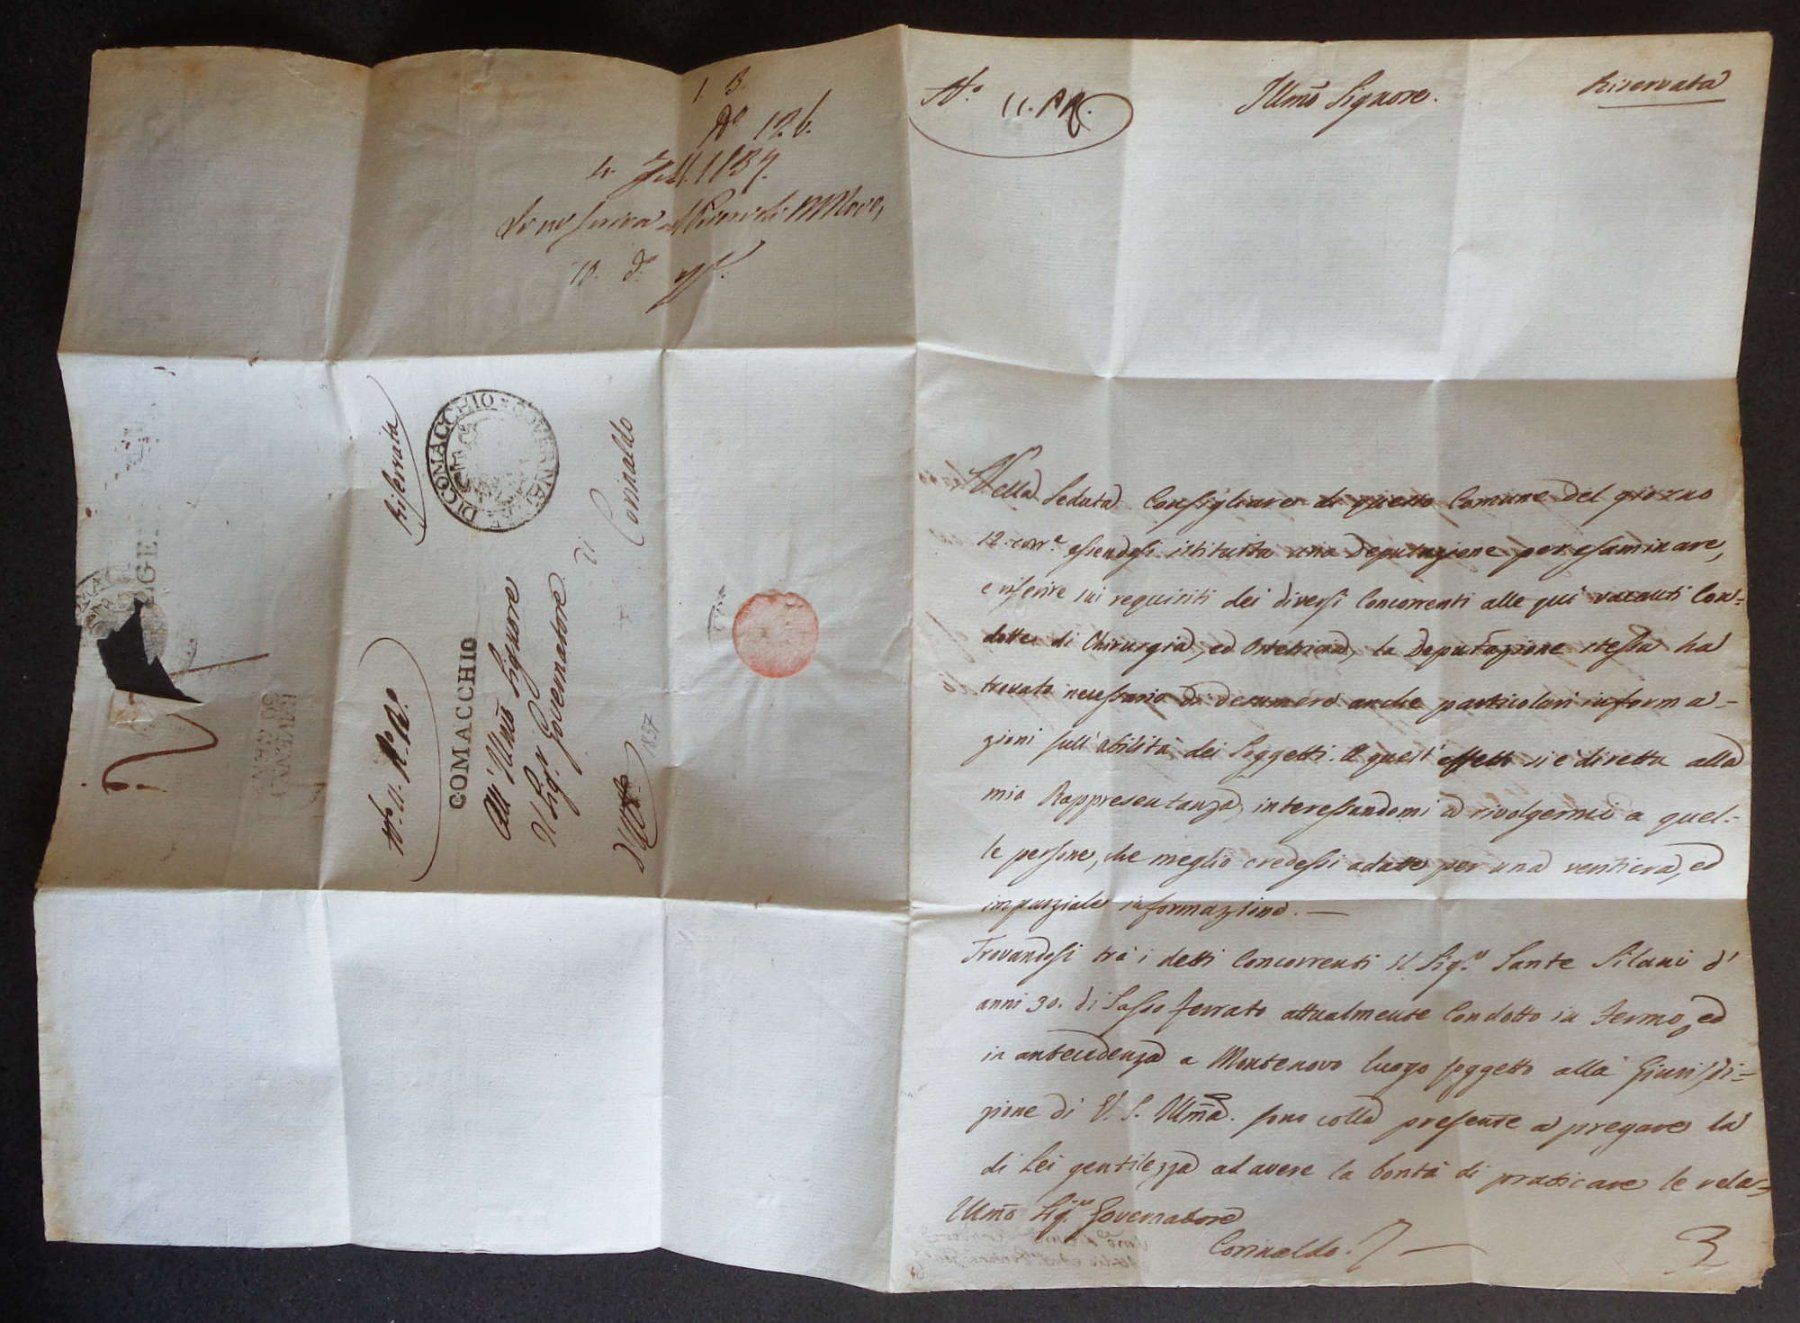 N.° 11. P.R.
Illmo Signore.
Riservata
Nella Seduta Consigliare di questo Comune del giorno
12. corr.e essendosi istituita una Deputazione per esaminare,
e riferire sui requisiti dei diversi Concorrenti alle qui vacanti Con=
dotte di Chirurgia, ed Ostetricia, la Deputazione stessa ha
trovato necessario di desumere anche particolari informa-
zioni sull'abilità dei Soggetti. A quest'effetto si è diretta alla
mia Rappresentanza, interessandomi a rivolgermi a quel-
le persone, che meglio credessi adatte per una veritiera, ed
imparziale informazione. —
Trovandosi trà i detti Concorrenti il Sig.r Sante Silani d'
anni 30. di Sasso ferrato attualmente Condotto in Fermo, ed
in antecedenza a Montenovo luogo soggetto alla Giurisdi=
zione di V. S. Illma. sono colla presente a pregare la
di Lei gentilezza ad avere la bontà di praticare le rela=
Illmo Sig.re Governatore
Corinaldo.
N.° 126.
1837.
Riservata
GOVERNA DI COMACCHIO
N.° 11. P.R.
COMACCHIO
All' Illmo Signore
Il Sig.r Governatore
di Corinaldo
1837
GE.